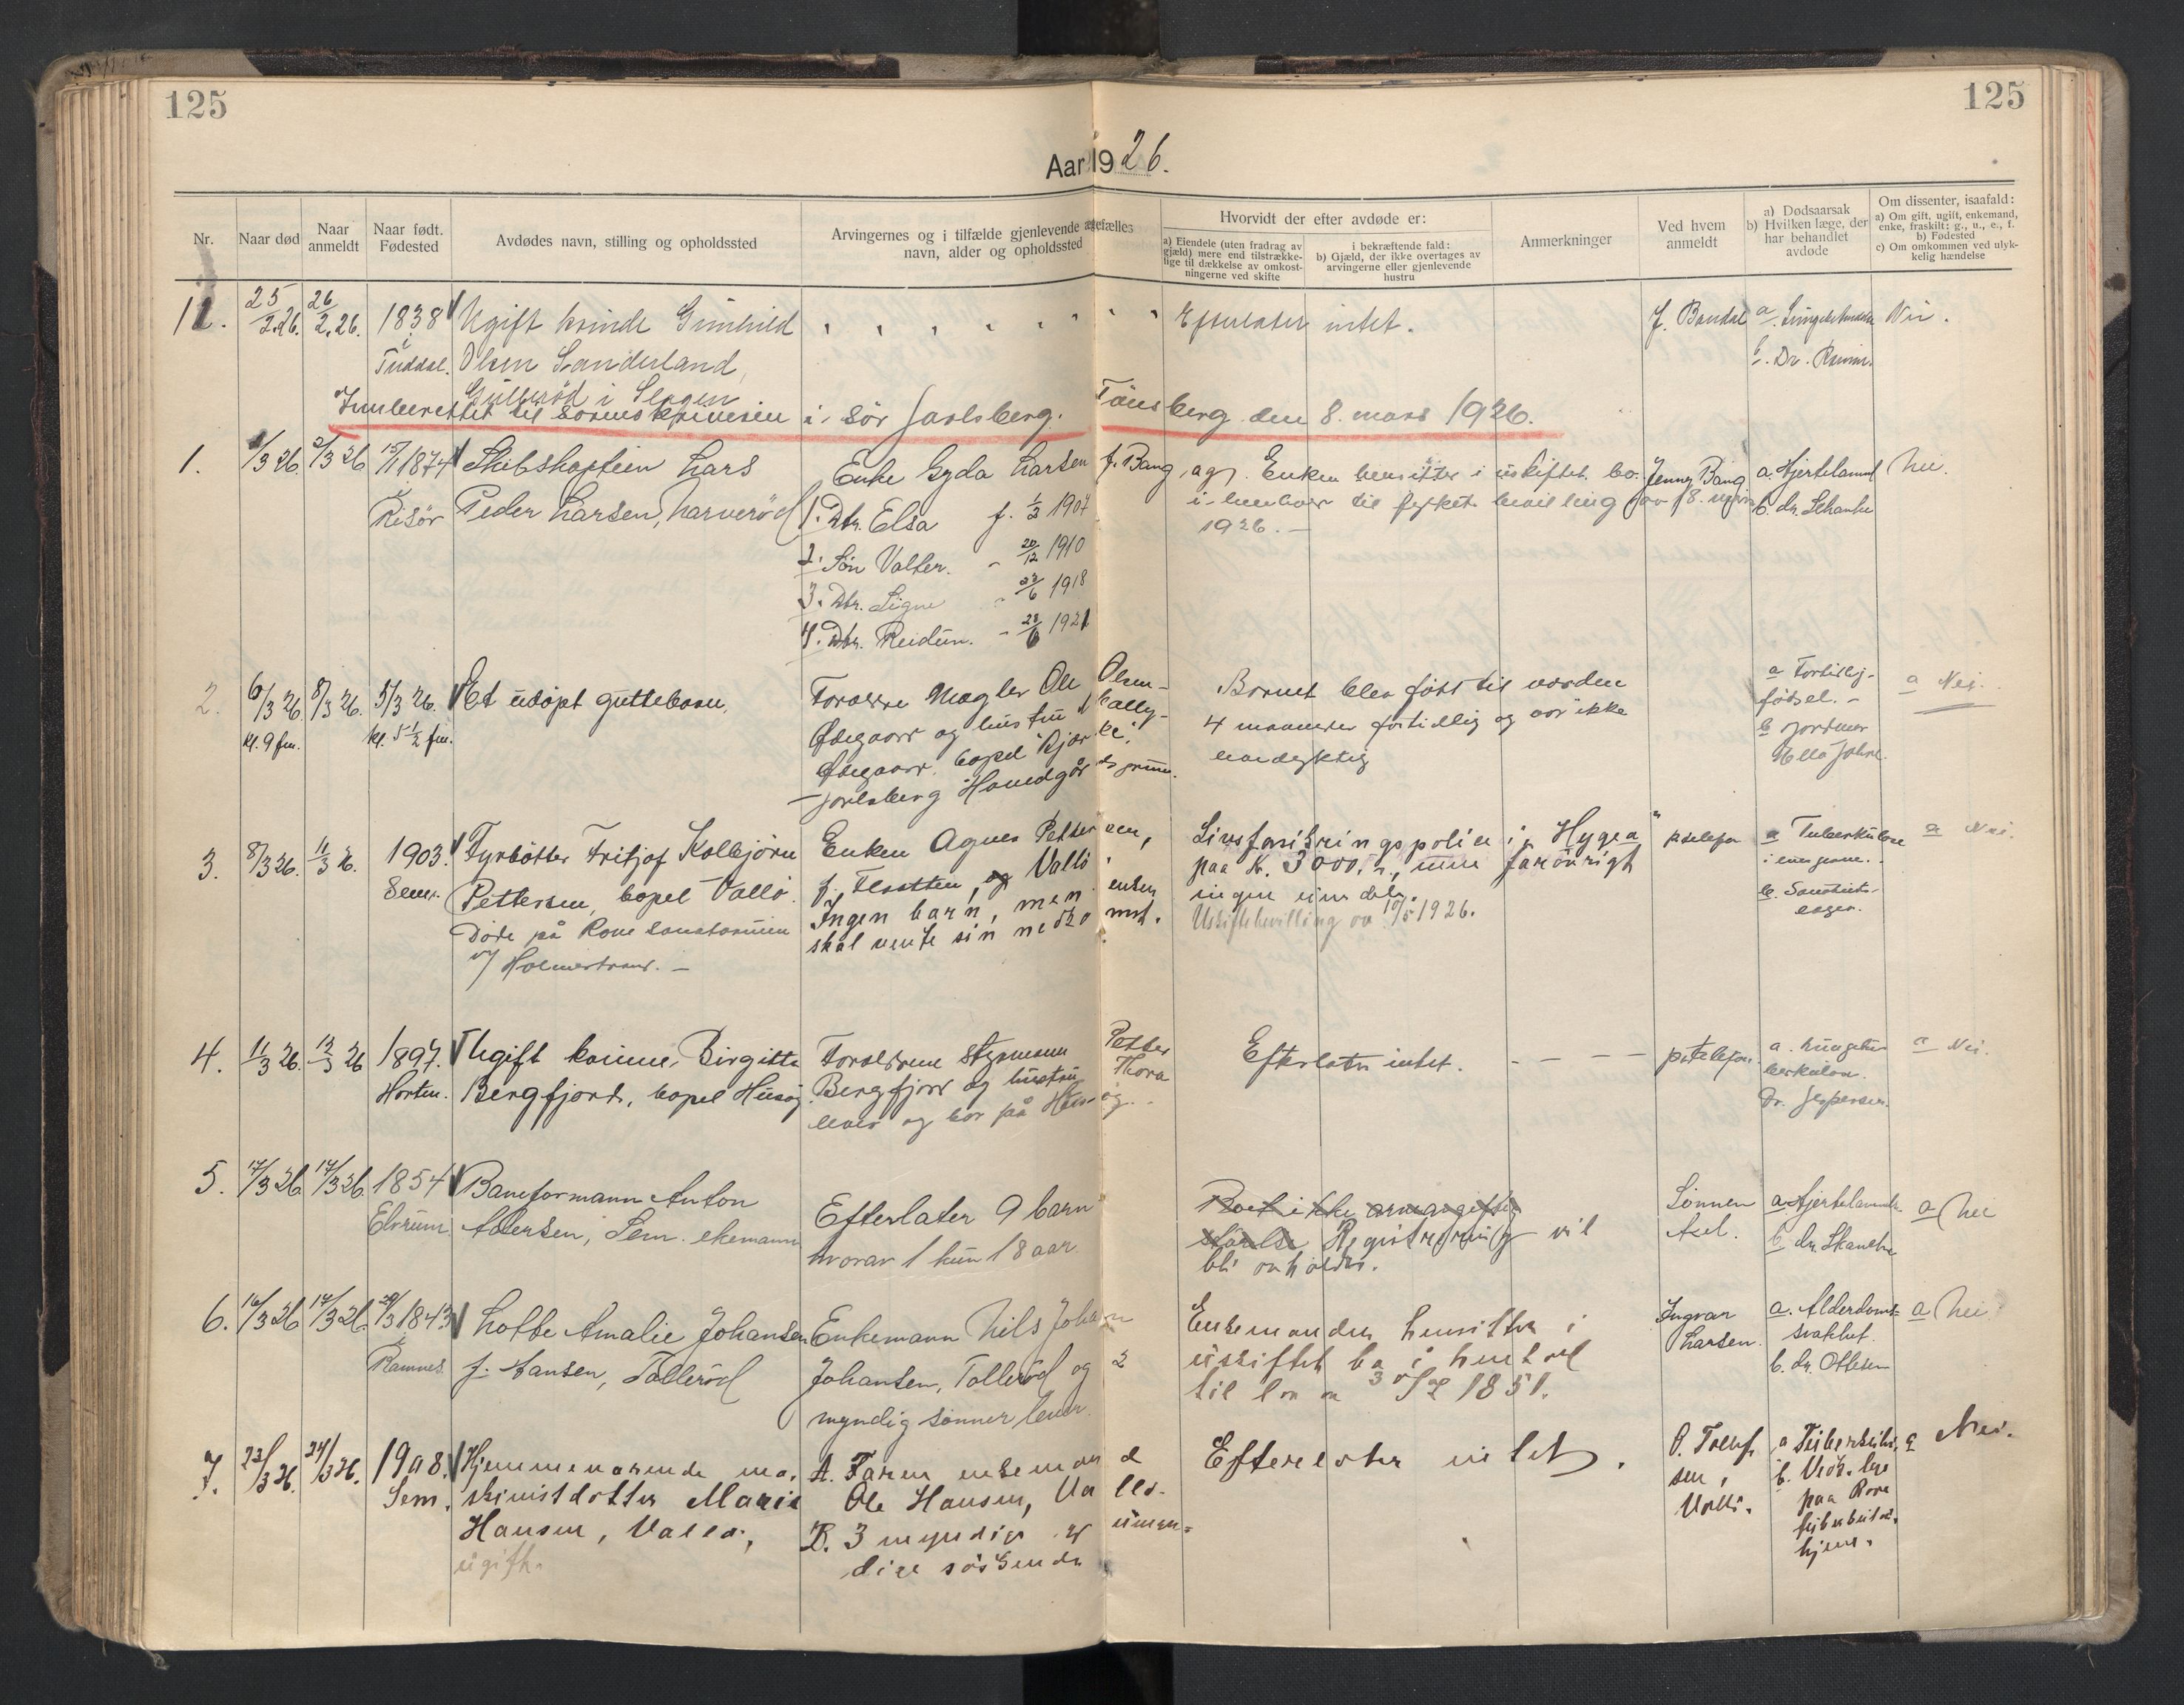 125
125
Aar 1926.
Nr.
Naar død
Naar anmeldt
Naar født. Fødested
Avdødes navn, stilling og opholdssted
Arvingernes og i tilfælde gjenlevende ægtefælles navn, alder og opholdssted
Hvorvidt der efter avdøde er:
a) Eiendele (uten fradrag av gjæld) mere end tilstrækkelige til dækkelse av omkostningerne ved skifte
i bekræftende fald:
b) Gjæld, der ikke overtages av arvingerne eller gjenlevende hustru
Anmerkninger
Ved hvem anmeldt
a) Dødsaarsak
b) Hvilken læge, der har behandlet avdøde
Om dissenter, isaafald:
a) Om gift, ugift, enkemand, enke, fraskilt: g., u., e., f.
b) Fødested
c) Om omkommen ved ulykkelig hændelse
11. 25/2.26. 26/2.26. 1838 Ugift kvinde Gunhild Efterlater intet. Nei.
i Tuddal. Olsen Sanderland, b. Dr.
i Slagen
Innberettet til sorenskriveren i Sør Jarlsberg. Tønsberg den 8. mars 1926.
1. 2/3 26 15/11 1874 Skibskaptein Lars Enke Gyda Larsen f. Bang, Enken hensitter i uskiftet bo Jenny Bang a. Hjertelammelse Nei.
i Risør Peder Larsen, Narverød 1. Dtr. Elsa f. 1/2 1907 i henhold til fylkets bevilling av 18. b. dr. Schanche
2. Søn Valter. - 20/12 1910 1926. -
3. Dtr. Signe - 23/6 1918
4. Dtr. Reidun. - 28/6 1921
2. 6/3 26 8/3 26. 5/3 26. Et udøpt guttebarn. Forældre Magler Ole Olsen Barnet blev født til verden a Fortidlig- a Nei.
kl. 9 fm. kl. 5 1/2 fm. Ødegaard og hustru 4 maaneder fortidlig og var ikke fødsel. -
Ødegaard, bopel Bjerke, levedyktig b jordmor
Jarlsberg Hovedgård Ella
3. 8/3 26. 11/3 26. 1903. Fyrbøtter Fritjof Kolbjørn Enken Agnes Pettersen, Livsforsikringspolice i "Hygea" p. telefon a Tuberkulose a Nei.
Sem. Pettersen, bopel Vallø. f. Flaatten, Vallø. paa Kr. 3000.-, men forøvrigt i lungerne.
Døde på Rove sanatorium Ingen barn, men enken ingen eiendele. b. Sanatorie-
v/ Holmestrand. - skal vente sin nedkomst. Uskiftebevilling av 10/5 1926. lægen.
4. 11/3 26. 13/3 26 1897. Ugift kvinne, Birgitte Forældrene styrmann Petter Efterlater intet. - - - - p. telefon a. Lungetu- a Nei.
Horten. Bergfjord, bopel Husøy. Bergfjord og hustru Thora berkulose.
lever og bor på Husøy. Dr. Jespersen.
5. 17/3 26 17/3 26 1854 Baneformann Anton Efterlater 9 barn Boet ikke arveavgiftspliktig Sønnen a. Hjertelammelse a Nei
Elvrum. Andersen, Sem. ekemann hvorav 1 kun 18 aar. Registrering vil Axel. b. dr. Skanche
bli avholdt.
6. 16/3 26 17/3 26. 29/3 1843 Lotte Amalie Johansen Enkemann Nils Johan Enkemanden hensitter i Ingvar a. Alderdoms- a Nei
i Ramnes f. Hansen, Tollerød Johansen, Tollerød og 2 uskiftet bo i henhold Larsen. svakhet.
myndig sønner lever. til lov av 30/7 1851. b. dr. Ottesen
7. 23/3 26. 24/3 26. 1908. Hjemmeværende ma- A. Faren enkemand Efterlater intet. a Tuberkulose a Nei.
Sem. skinistdatter Marie Ole Hansen, Vallø. b. Vedk. læge
Hansen, Vallø, B. 3 myndige og umyn- Vallø. paa Rove
ugift. dige søskende tuberkulose-
hjem.